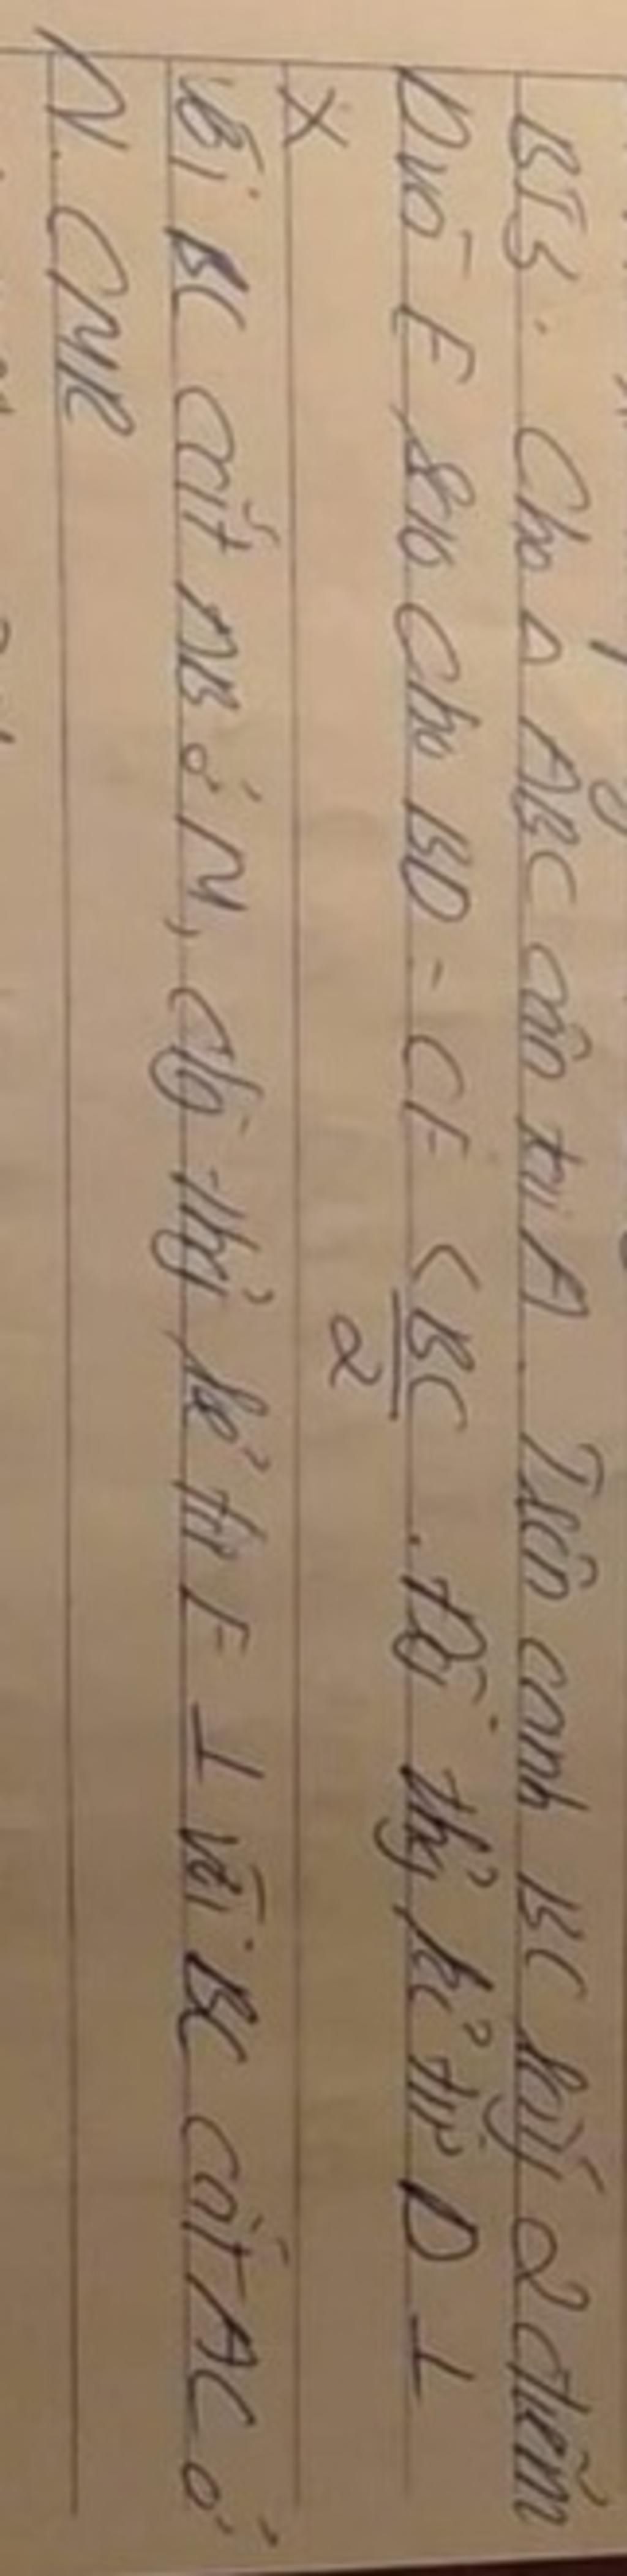 BT3. Cho Δ ABC cân tại A. Trên cạnh BC lấy 2 điểm
D và E sao cho BD = CE < BC/2. Đường thẳng kẻ từ D ⊥
với BC cắt AB ở M, đg thẳng kẻ từ E ⊥ với BC cắt AC ở
N. CMR